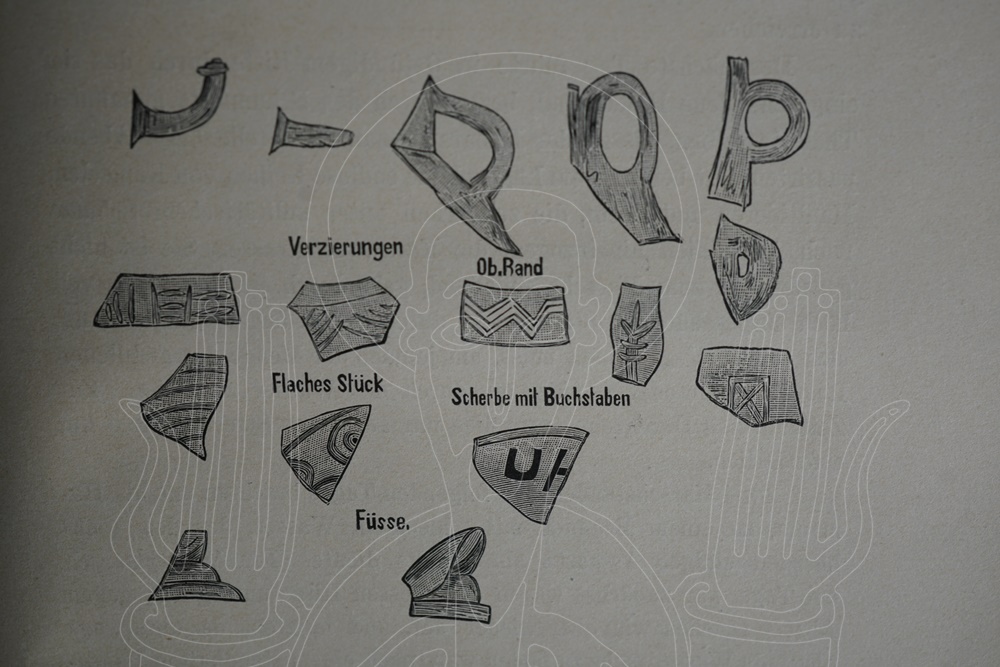 Verzierungen
Ob.Rand
Flaches Stück
Scherbe mit Buchstaben
Füsse.